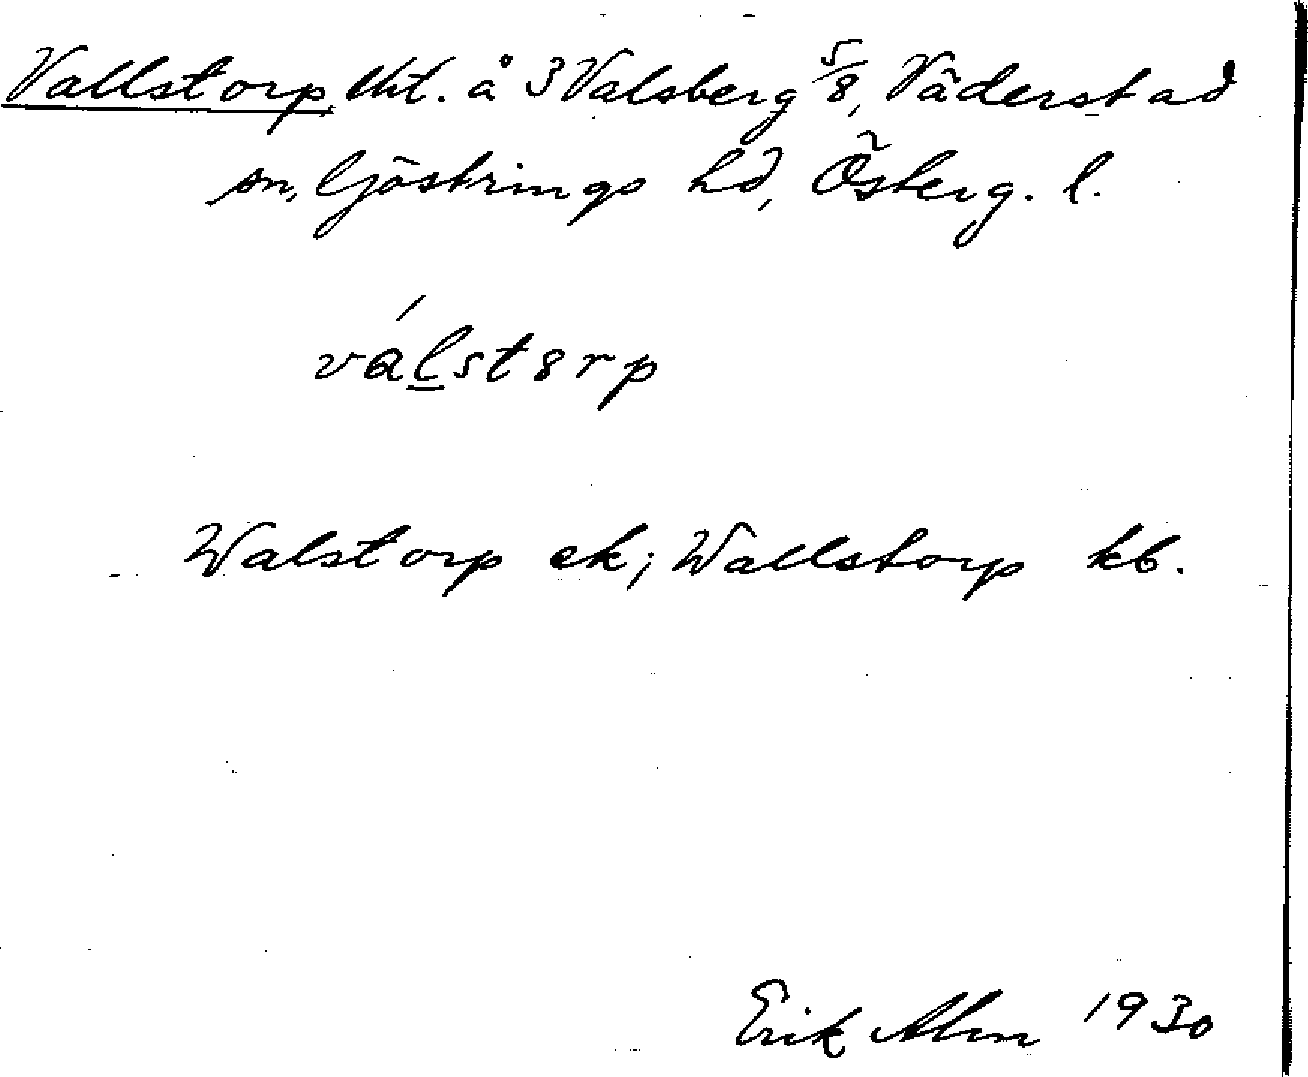 Vallstorp lht. å 3 Valsberg 5/8, Väderstad
sn, Göstrings hd, Österg. l.
válst8rp
Walstorp ek; Wallstorp kb.
Erik Alm 1930